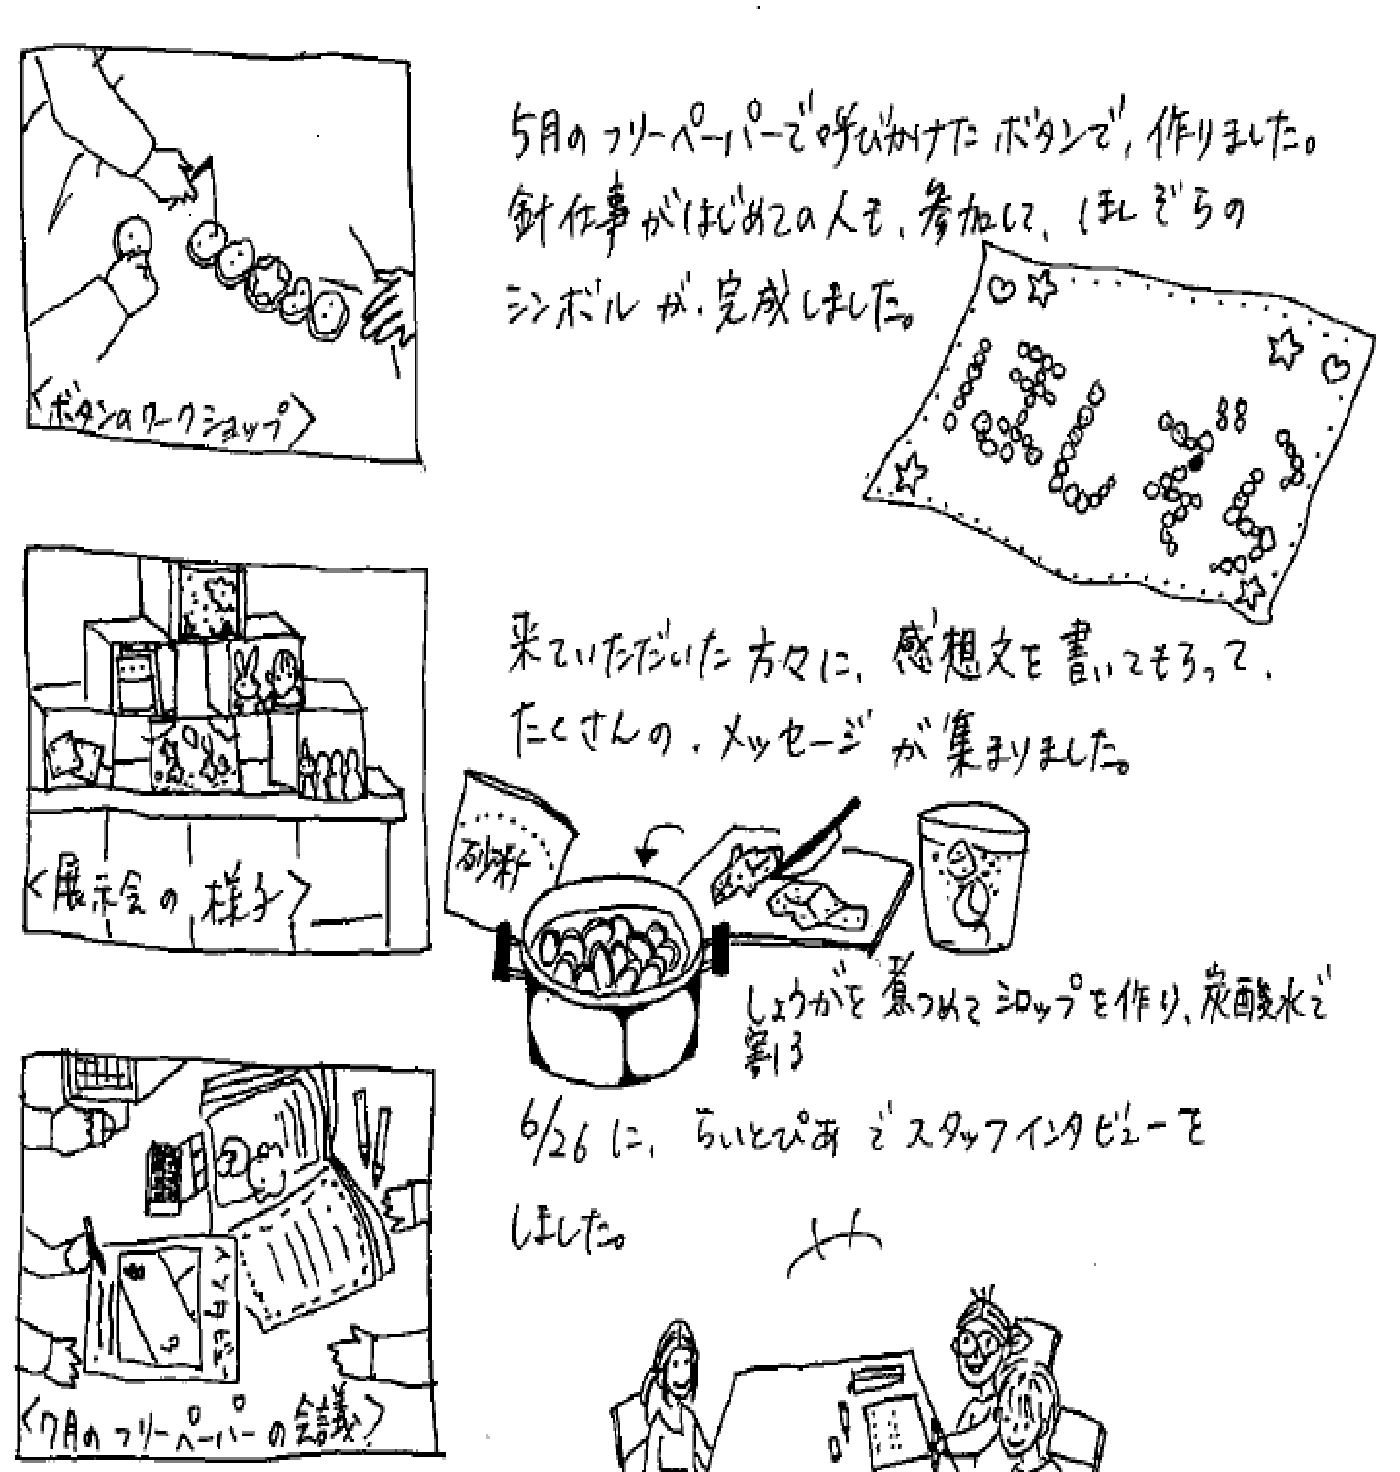 5月のフリーペーパーで呼びかけたボタンで、作りました。
針仕事がはじめての人も、参加して、ほしぞらの
シンボルが、完成しました。
<ボタンのワークショップ>
ほしぞら
来ていただいた方々に、感想文を書いてもらって、
たくさんの、メッセージが集まりました。
<展示会の様子>
砂糖
しょうがを煮つめてシロップを作り、炭酸水で
割る
6/26に、らいとぴあでスタッフインタビューを
しました。
インタビュー
<7月のフリーペーパーの会議>